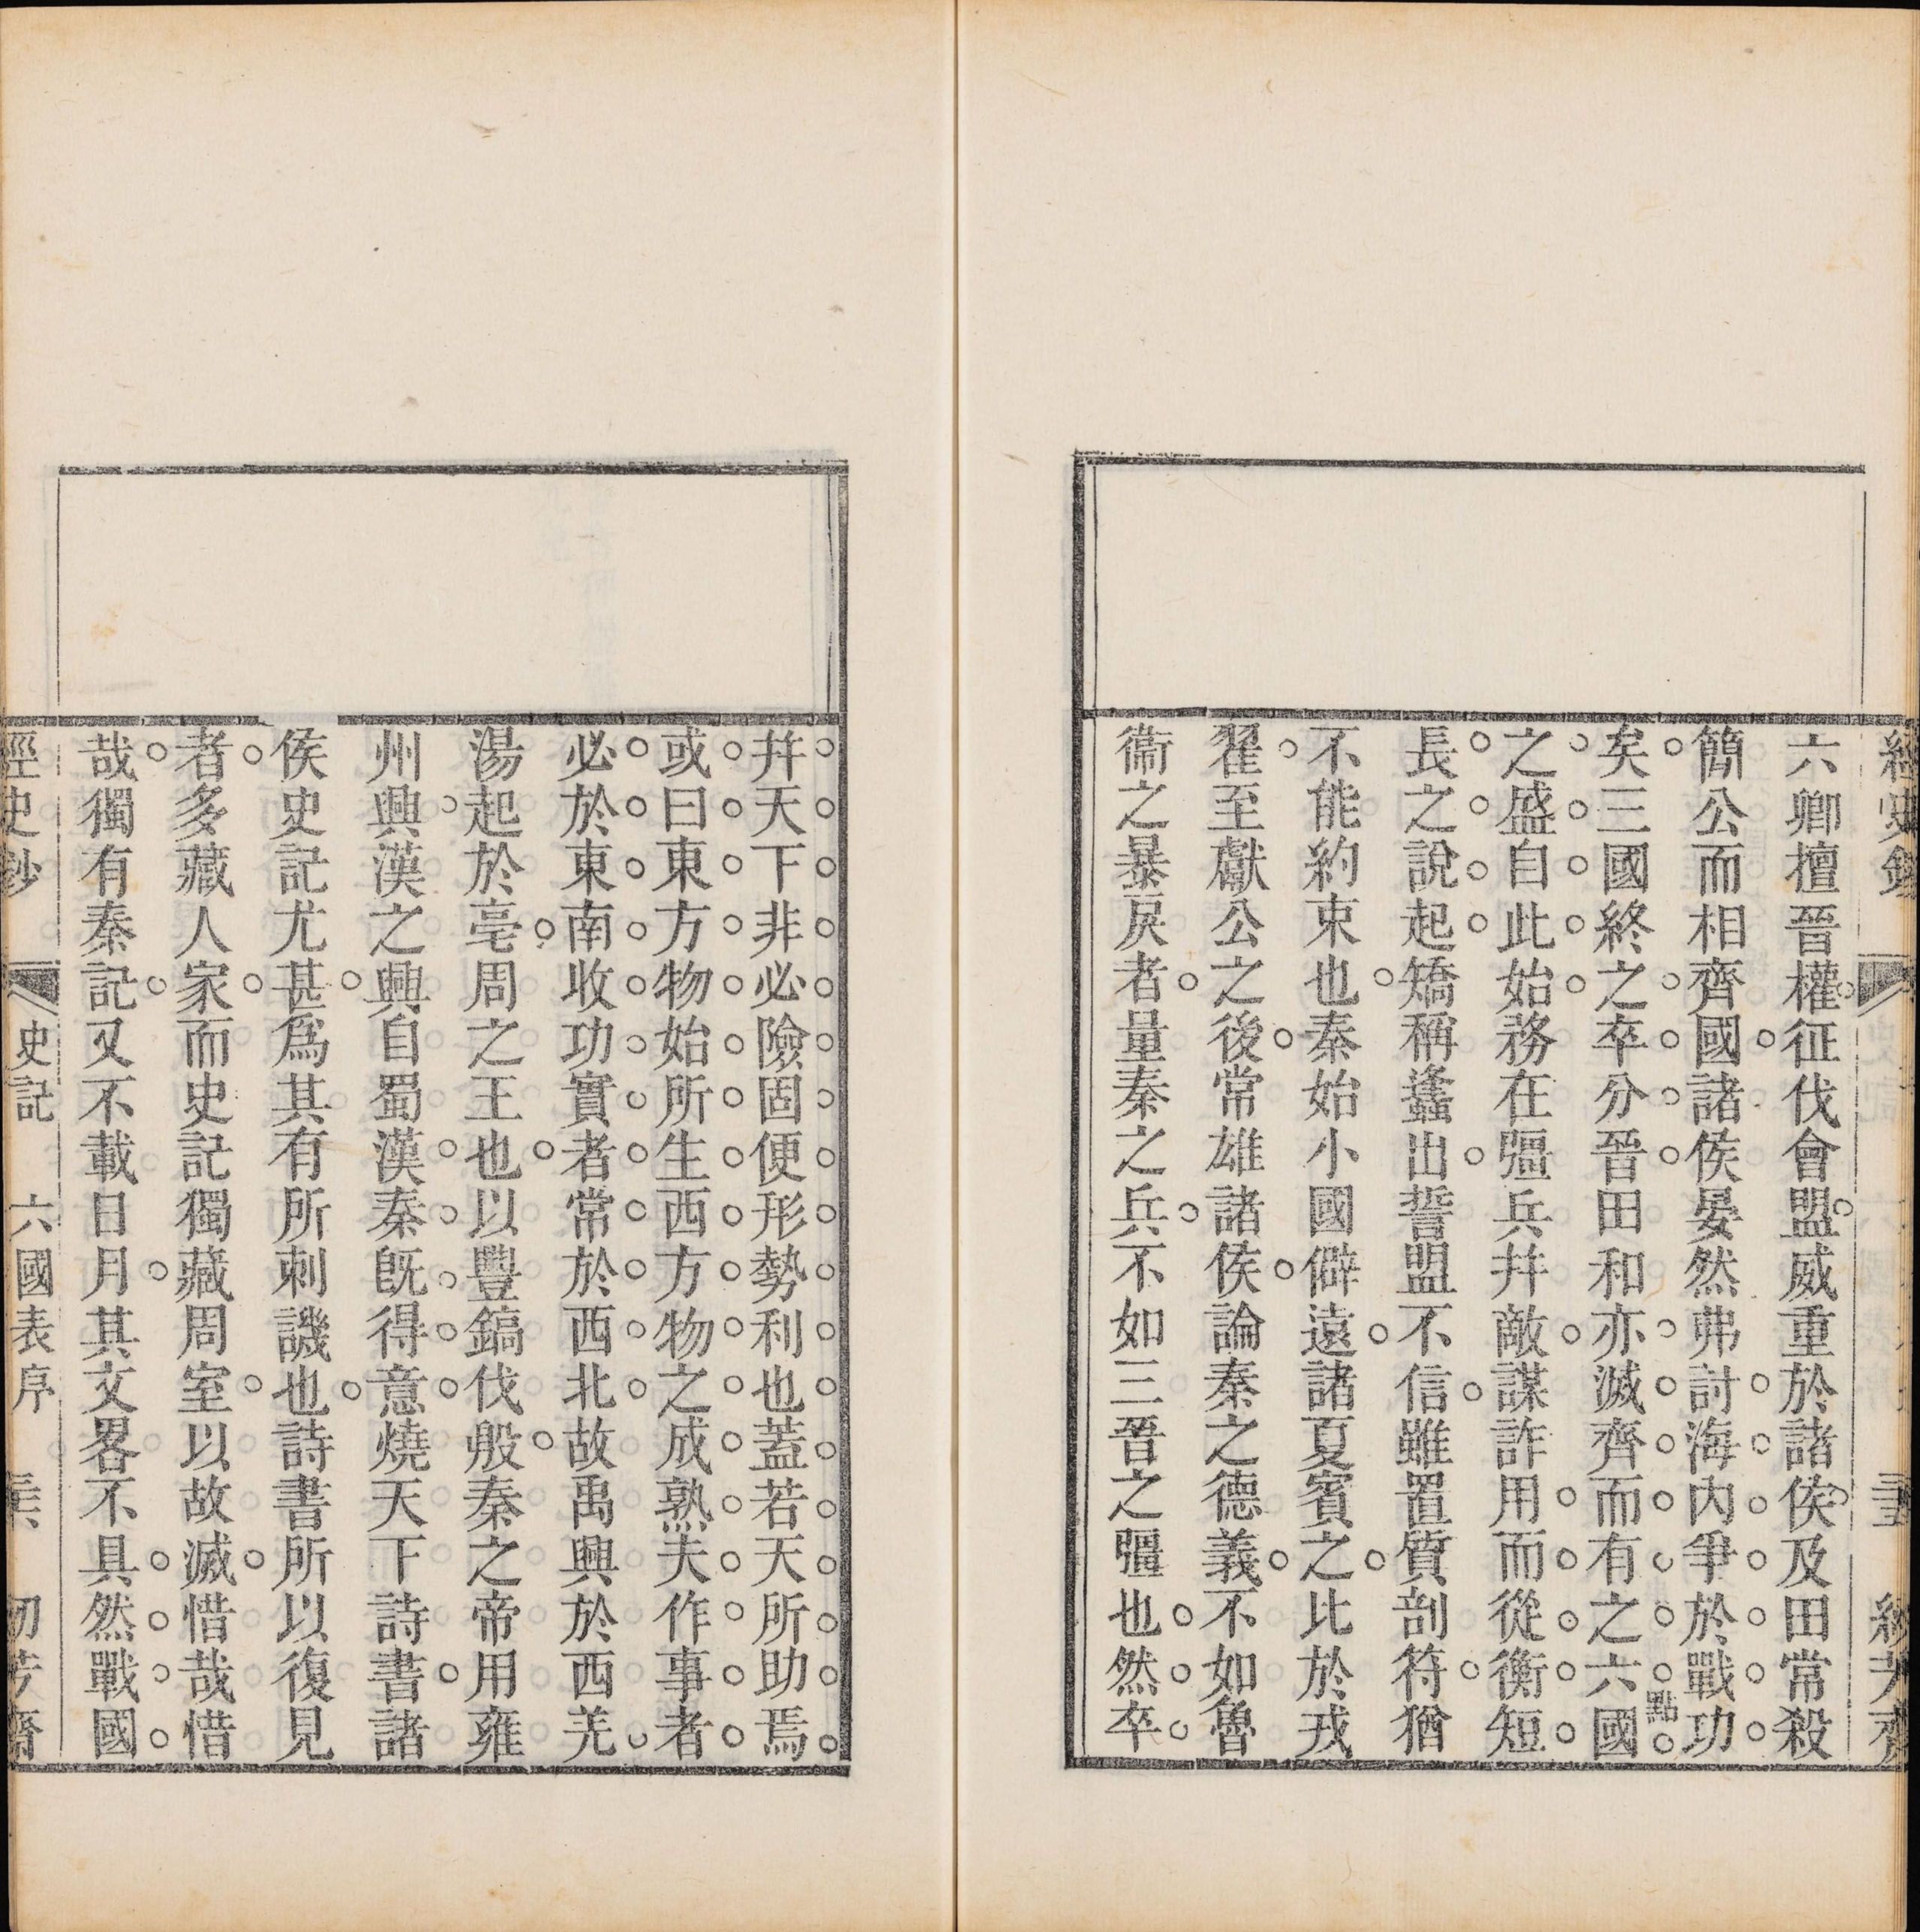 六卿擅晉權征伐會盟威重於諸侯及田常殺
簡公而相齊國諸侯晏然弗討海內爭於戰功
矣三國終之卒分晉田和亦滅齊而有之六國
點
之盛自此始務在彊兵幷敵謀詐用而從衡短
長之說起矯稱蠭出誓盟不信雖置質剖符猶
不能約束也秦始小國僻遠諸夏賓之比於戎
翟至獻公之後常雄諸侯論秦之德義不如魯
衞之暴戾者量秦之兵不如三晉之彊也然卒
幷天下非必險固便形勢利也蓋若天所助焉
或曰東方物始所生西方物之成熟夫作事者
必於東南收功實者常於西北故禹興於西羌
湯起於亳周之王也以豐鎬伐殷秦之帝用雍
州興漢之興自蜀漢秦旣得意燒天下詩書諸
侯史記尤甚爲其有所刺譏也詩書所以復見
者多藏人家而史記獨藏周室以故滅惜哉惜
哉獨有秦記又不載日月其文畧不具然戰國
經史鈔 史記 六國表序